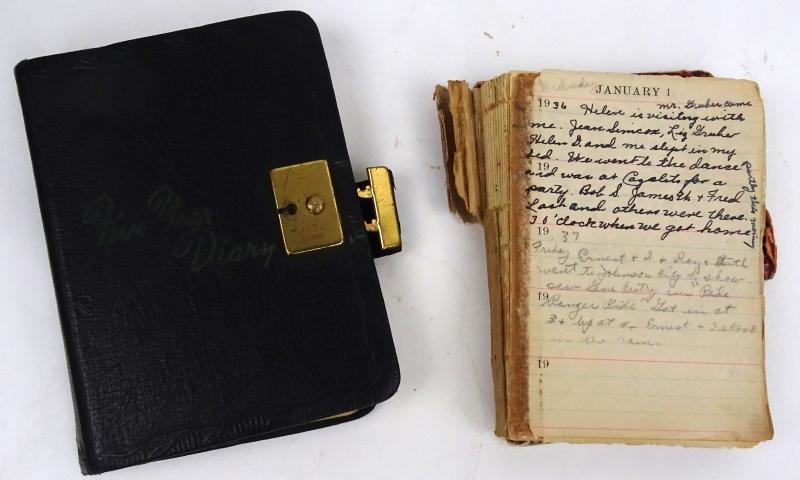 Five Year
Diary
Wednesday
JANUARY 1
1936 Helen is visiting with
mr. Gruber came
me. Jean Simcox, Liz Gruber
Helen D. and me slept in my
bed. We went to the dance
19
and was at Cazalits for a
party. Bob S. James Eh. + Fred
Lash and others were there.
3 o'clock when we got home
party this morning
19 37
Friday Ernest + I + Ray + Ruth
went to Johnson City to show
saw Gene Autry in "Ride
19
Ranger Ride" Got in at
3 + up at Ernest + I stood
in the rain.
19